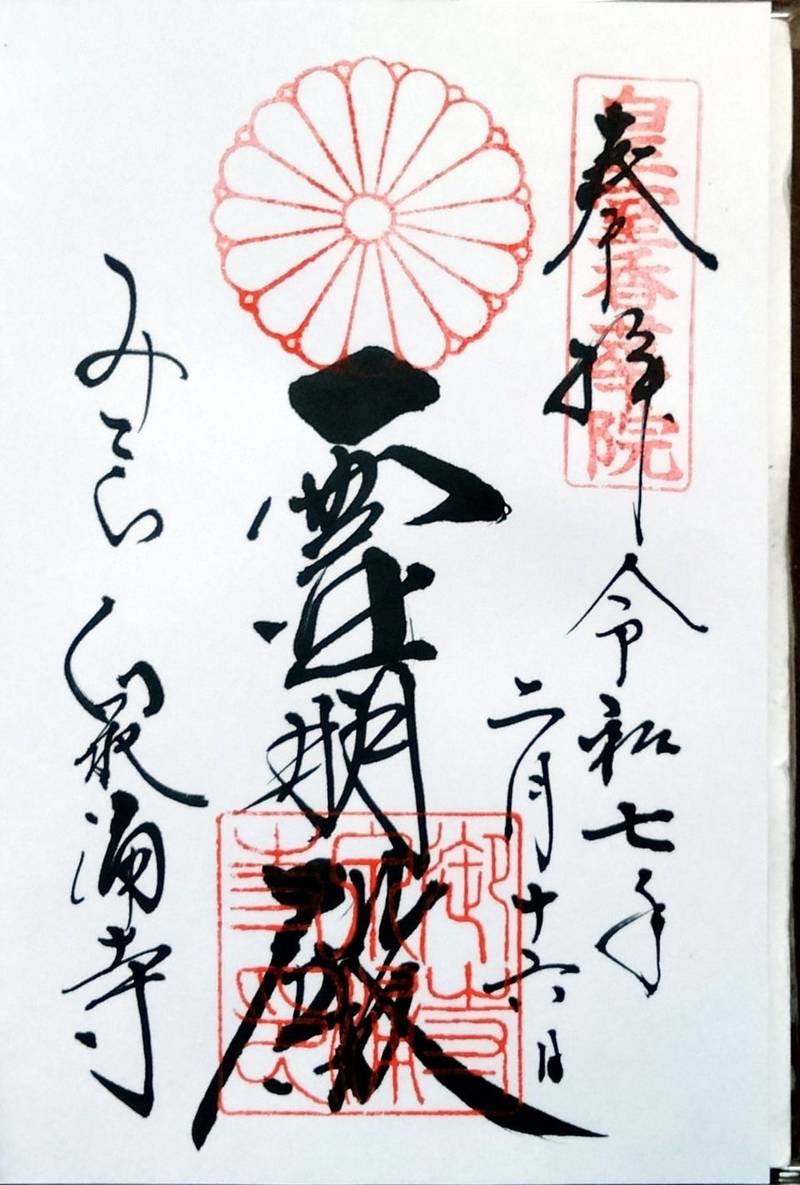 皇室香華院
奉拝
令和七年
二月十六日
霊明殿
御寺泉涌寺印
みてら
泉涌寺